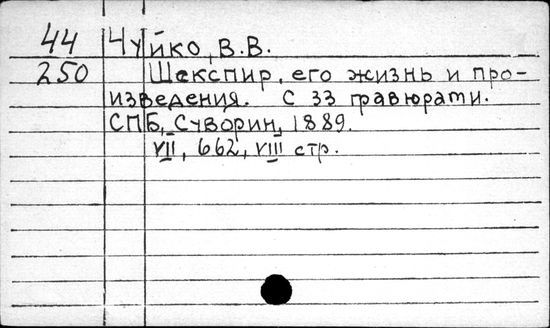 44 Чуйко, В.В.
250 Шекспир, его жизнь и про-
изведения. С 33 гравюрати.
СПБ, Суворин, 1889.
VII, 662, VIII стр.